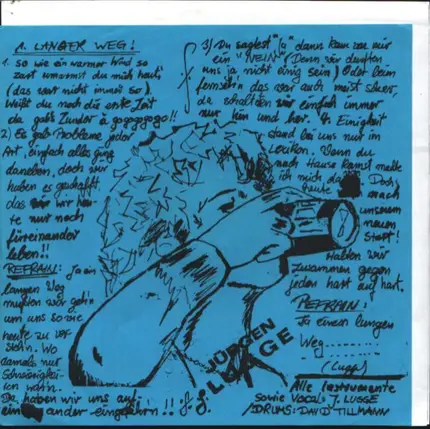 A. LANGER WEG!
1. so wie ein warmer Wind so
zart umarmst du mich heut,
(das war nicht immer so).
Weißt du noch die erste Zeit
da gab's Zunder à gogogogo!!
2) Es gab Probleme jeder
Art, einfach alles ging
daneben, doch wir
haben es geschafft.
das wir heu-
te nur noch
füreinander
leben!!
REFRAIN: Ja an
langen Weg
mußten wir geh'n
um uns so wie
heute zu ver-
steh'n. Wo
damals nur
Schwierigkei-
ten war'n.
Da haben wir uns auf-
ein ander eingefahr'n!!
3) Du sagtest "Ja" dann kam von mir
ein "NEIN" (Denn wir durften
uns ja nicht einig sein) Oder beim
fernseh'n das war auch meist schwer,
da schalteten wir einfach immer
nur hin und her. Einigkeit
stand bei uns nur im
Lexikon. Wenn du
nach Hause kamst melde
ich mich
heute Doch
nach
unserem
neuen
Start!
Halten wir
zusammen gegen
jeden hart auf hart.
REFRAIN:
Ja einen langen
Weg........
(Lugge)
JÜRGEN
LUGGE
Alle Instrumente
sowie Vocal: J. LUGGE
/DRUMS: DAVID TILLMANN